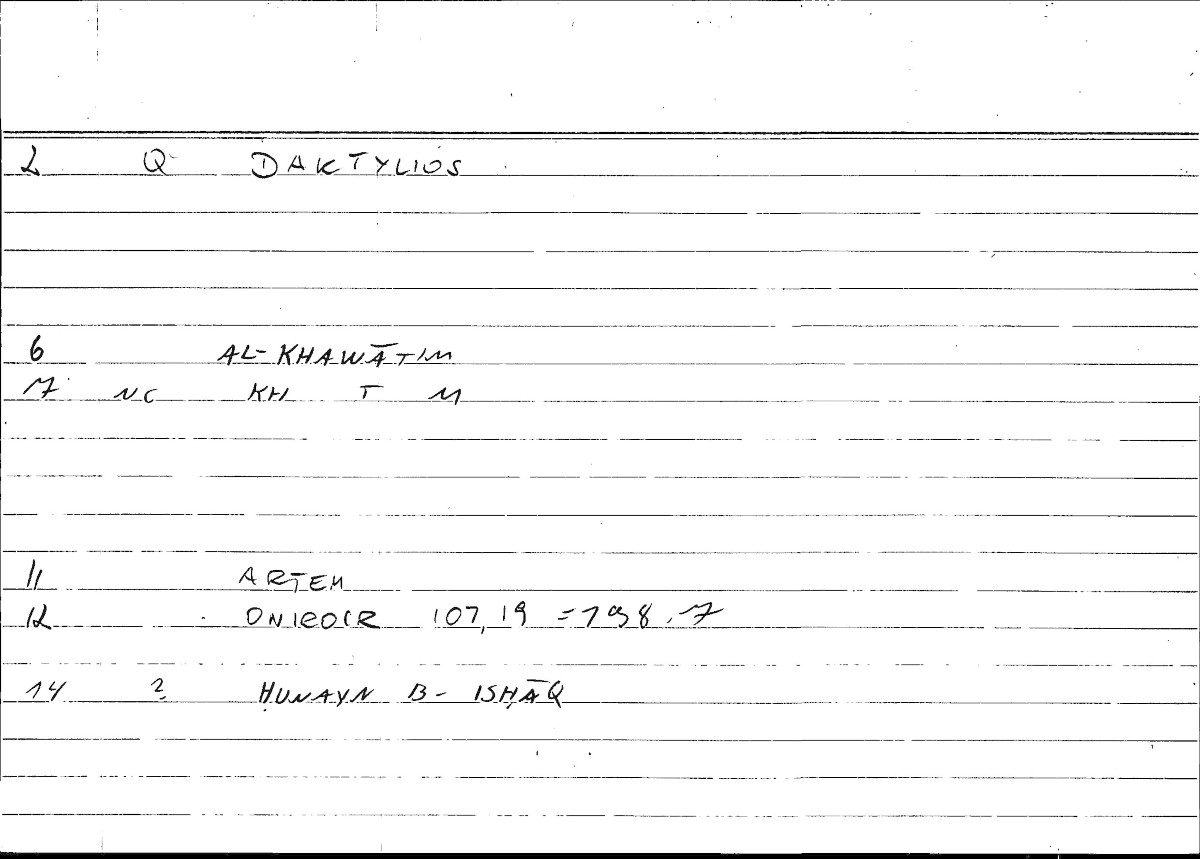 2 Q DAKTYLIOS
6 AL-KHAWĀTIM
7 NC KH T M
11 ARTEM
12 ONIROCR 107,19 = 198.7
14 2 ḤUNAYN B- ISḤĀQ